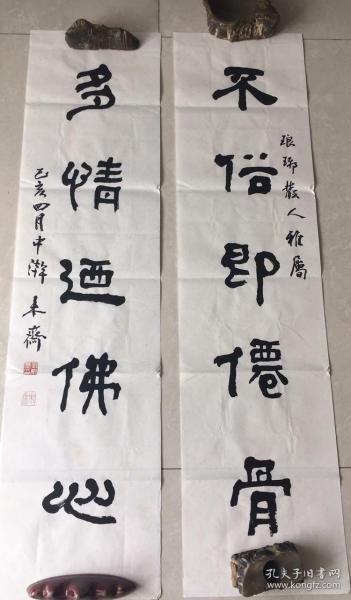 不俗即僊骨
琅琊散人雅属
多情迺佛心
己亥四月中澣 耒齋
孔夫子旧书网
www.kongfz.com